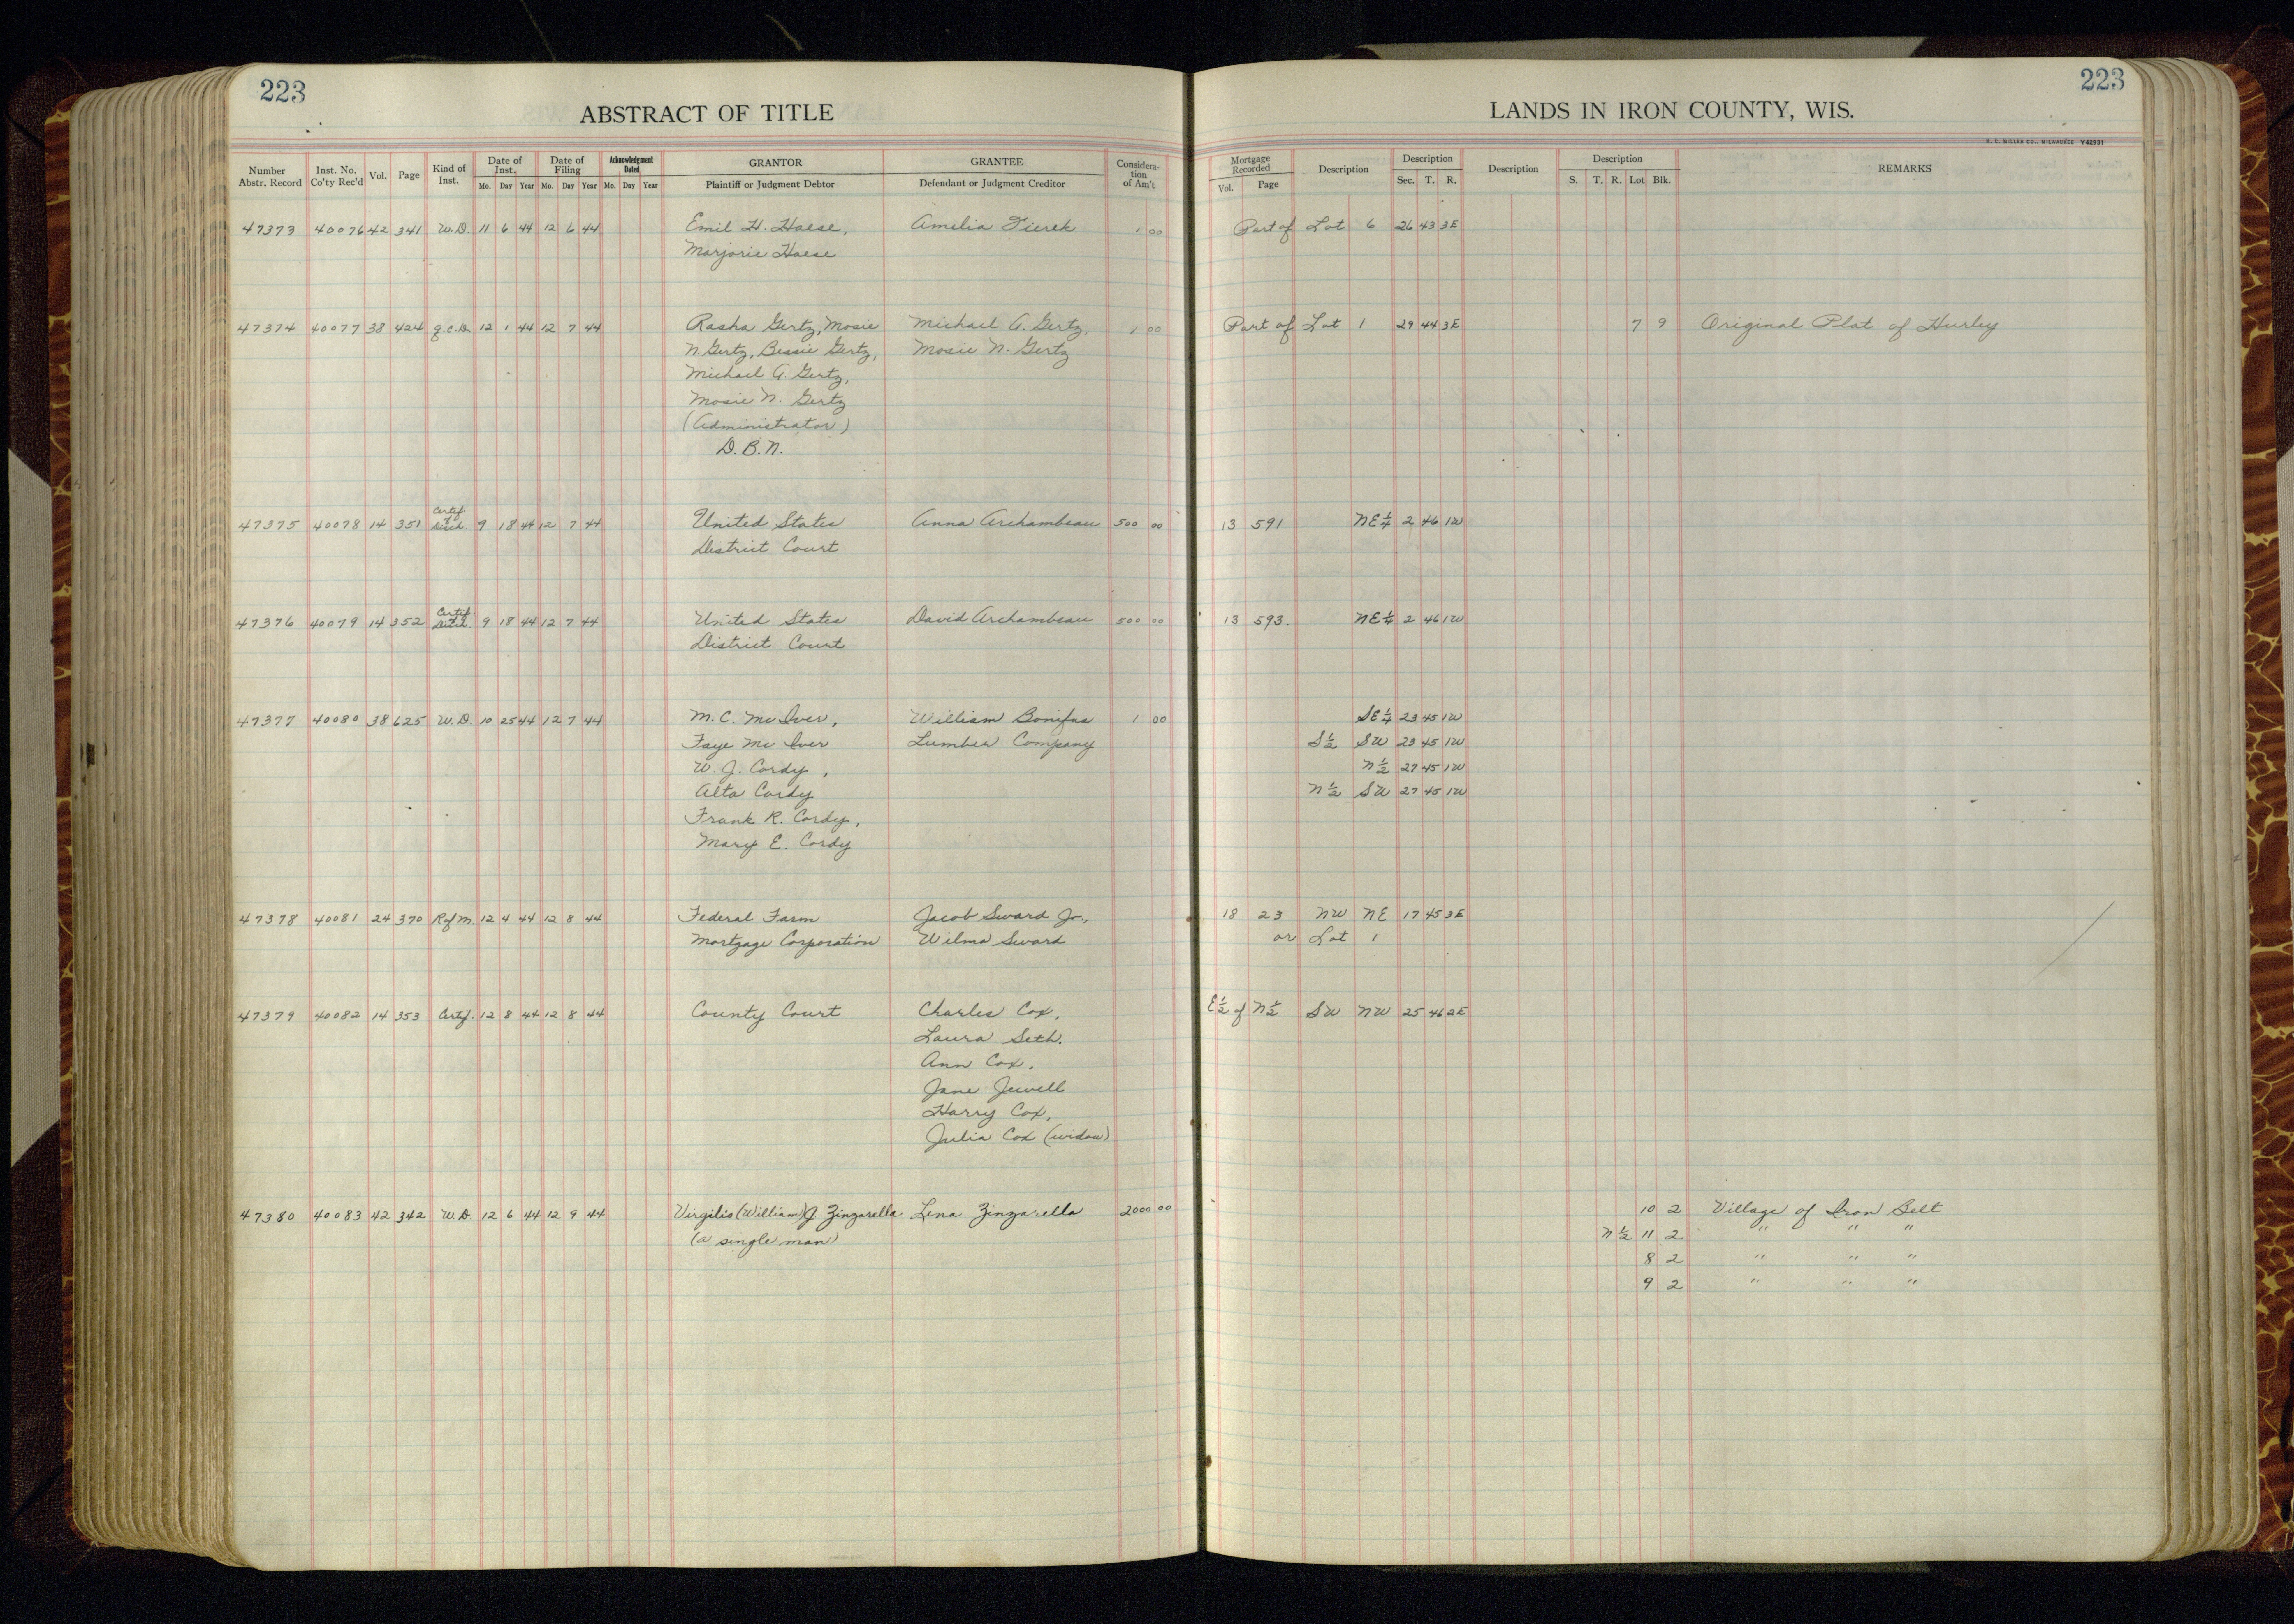 223
223
ABSTRACT OF TITLE
LANDS IN IRON COUNTY, WIS.
H. C. MILLER CO., MILWAUKEE Y42931
Number Abstr. Record Inst. No. Co'ty Rec'd Vol. Page Kind of Inst. Date of Inst. Mo. Day Year Date of Filing Mo. Day Year Acknowledgment Dated Mo. Day Year GRANTOR Plaintiff or Judgment Debtor GRANTEE Defendant or Judgment Creditor Considera-tion of Am't Mortgage Recorded Vol. Page Description Description Sec. T. R. Description Description S. T. R. Lot Blk. REMARKS
47373 40076 42 341 W.D. 11 6 44 12 6 44 Emil H. Haese, Amelia 1 00 Part of Lot 6 26 43 3E
Marjorie Haese
47374 40077 38 424 Q.C.D. 12 1 44 12 7 44 Rasha Gertz, Mosie Michael A. Gertz, 1 00 Part of Lot 1 29 44 3E 7 9 Original Plat of Hurley
N Gertz, Bessie Gertz, Mosie N. Gertz
Michael A. Gertz,
Mosie N. Gertz
(Administrator)
D.B.N.
47375 40078 14 351 Certif of Disch. 9 18 44 12 7 44 United States Anna Archambeau 500 00 13 591 NE 1/4 2 46 1W
District Court
47376 40079 14 352 Certif of Disch. 9 18 44 12 7 44 United States David Archambeau 500 00 13 593. NE 1/4 2 46 1W
District Court
47377 40080 38 625 W.D. 10 25 44 12 7 44 M.C. Mc Iver, William Bonifas 1 00 SE 1/4 23 45 1W
Faye Mc Iver Lumber Company S 1/2 SW 23 45 1W
W.J. Cordy, N 1/2 27 45 1W
Alta Cordy N 1/2 SW 27 45 1W
Frank R. Cordy,
Mary E. Cordy
47378 40081 24 370 R of M. 12 4 44 12 8 44 Federal Farm Jacob Sward Jr., 18 23 NW NE 17 45 3E
Mortgage Corporation Wilma Sward or Lot 1
47379 40082 14 353 Certif. 12 8 44 12 8 44 County Court Charles Cox, E 1/2 of N 1/2 SW NW 25 46 2E
Laura Seth.
Ann Cox,
Jane Jewell
Harry Cox,
Julia Cox (widow)
47380 40083 42 342 W.D. 12 6 44 12 9 44 Virgilis (William) J Zinzarella Lena Zinzarella 2000 00 10 2 Village of Iron Belt
(a single man) N 1/2 11 2 " " "
8 2 " " "
9 2 " " "